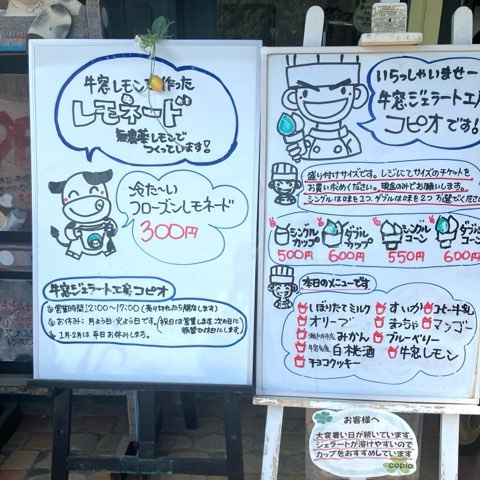 牛窓レモンで作った
レモネード
無農薬レモンで
つくっています!
冷た〜い
フローズンレモネード
300円
牛窓ジェラート工房コピオ
営業時間12:00〜17:00(売り切れたら閉店します)
お休み:月よう日・火よう日です。
(祝日は営業します 次の日に
振替でお休みします)
1月・2月は平日お休みします。
いらっしゃいませー
牛窓ジェラート工房
コピオです!
盛り付けサイズです。レジにてサイズのチケットを
お買い求めください。現金のみでお願いします。
シングルは味を1つ、ダブルは味を2つお選びください
シングル
カップ
500円
ダブル
カップ
600円
シングル
コーン
550円
ダブル
コーン
600円
本日のメニューです
しぼりたてミルク
オリーブ
瀬戸内市産 みかん
白桃酒
チョコクッキー
すいか
まっちゃ
ブルーベリー
牛窓レモン
コーヒー牛乳
マンゴー
お客様へ
大変暑い日が続いています。
ジェラートが溶けやすいので
カップをおすすめしています
copio